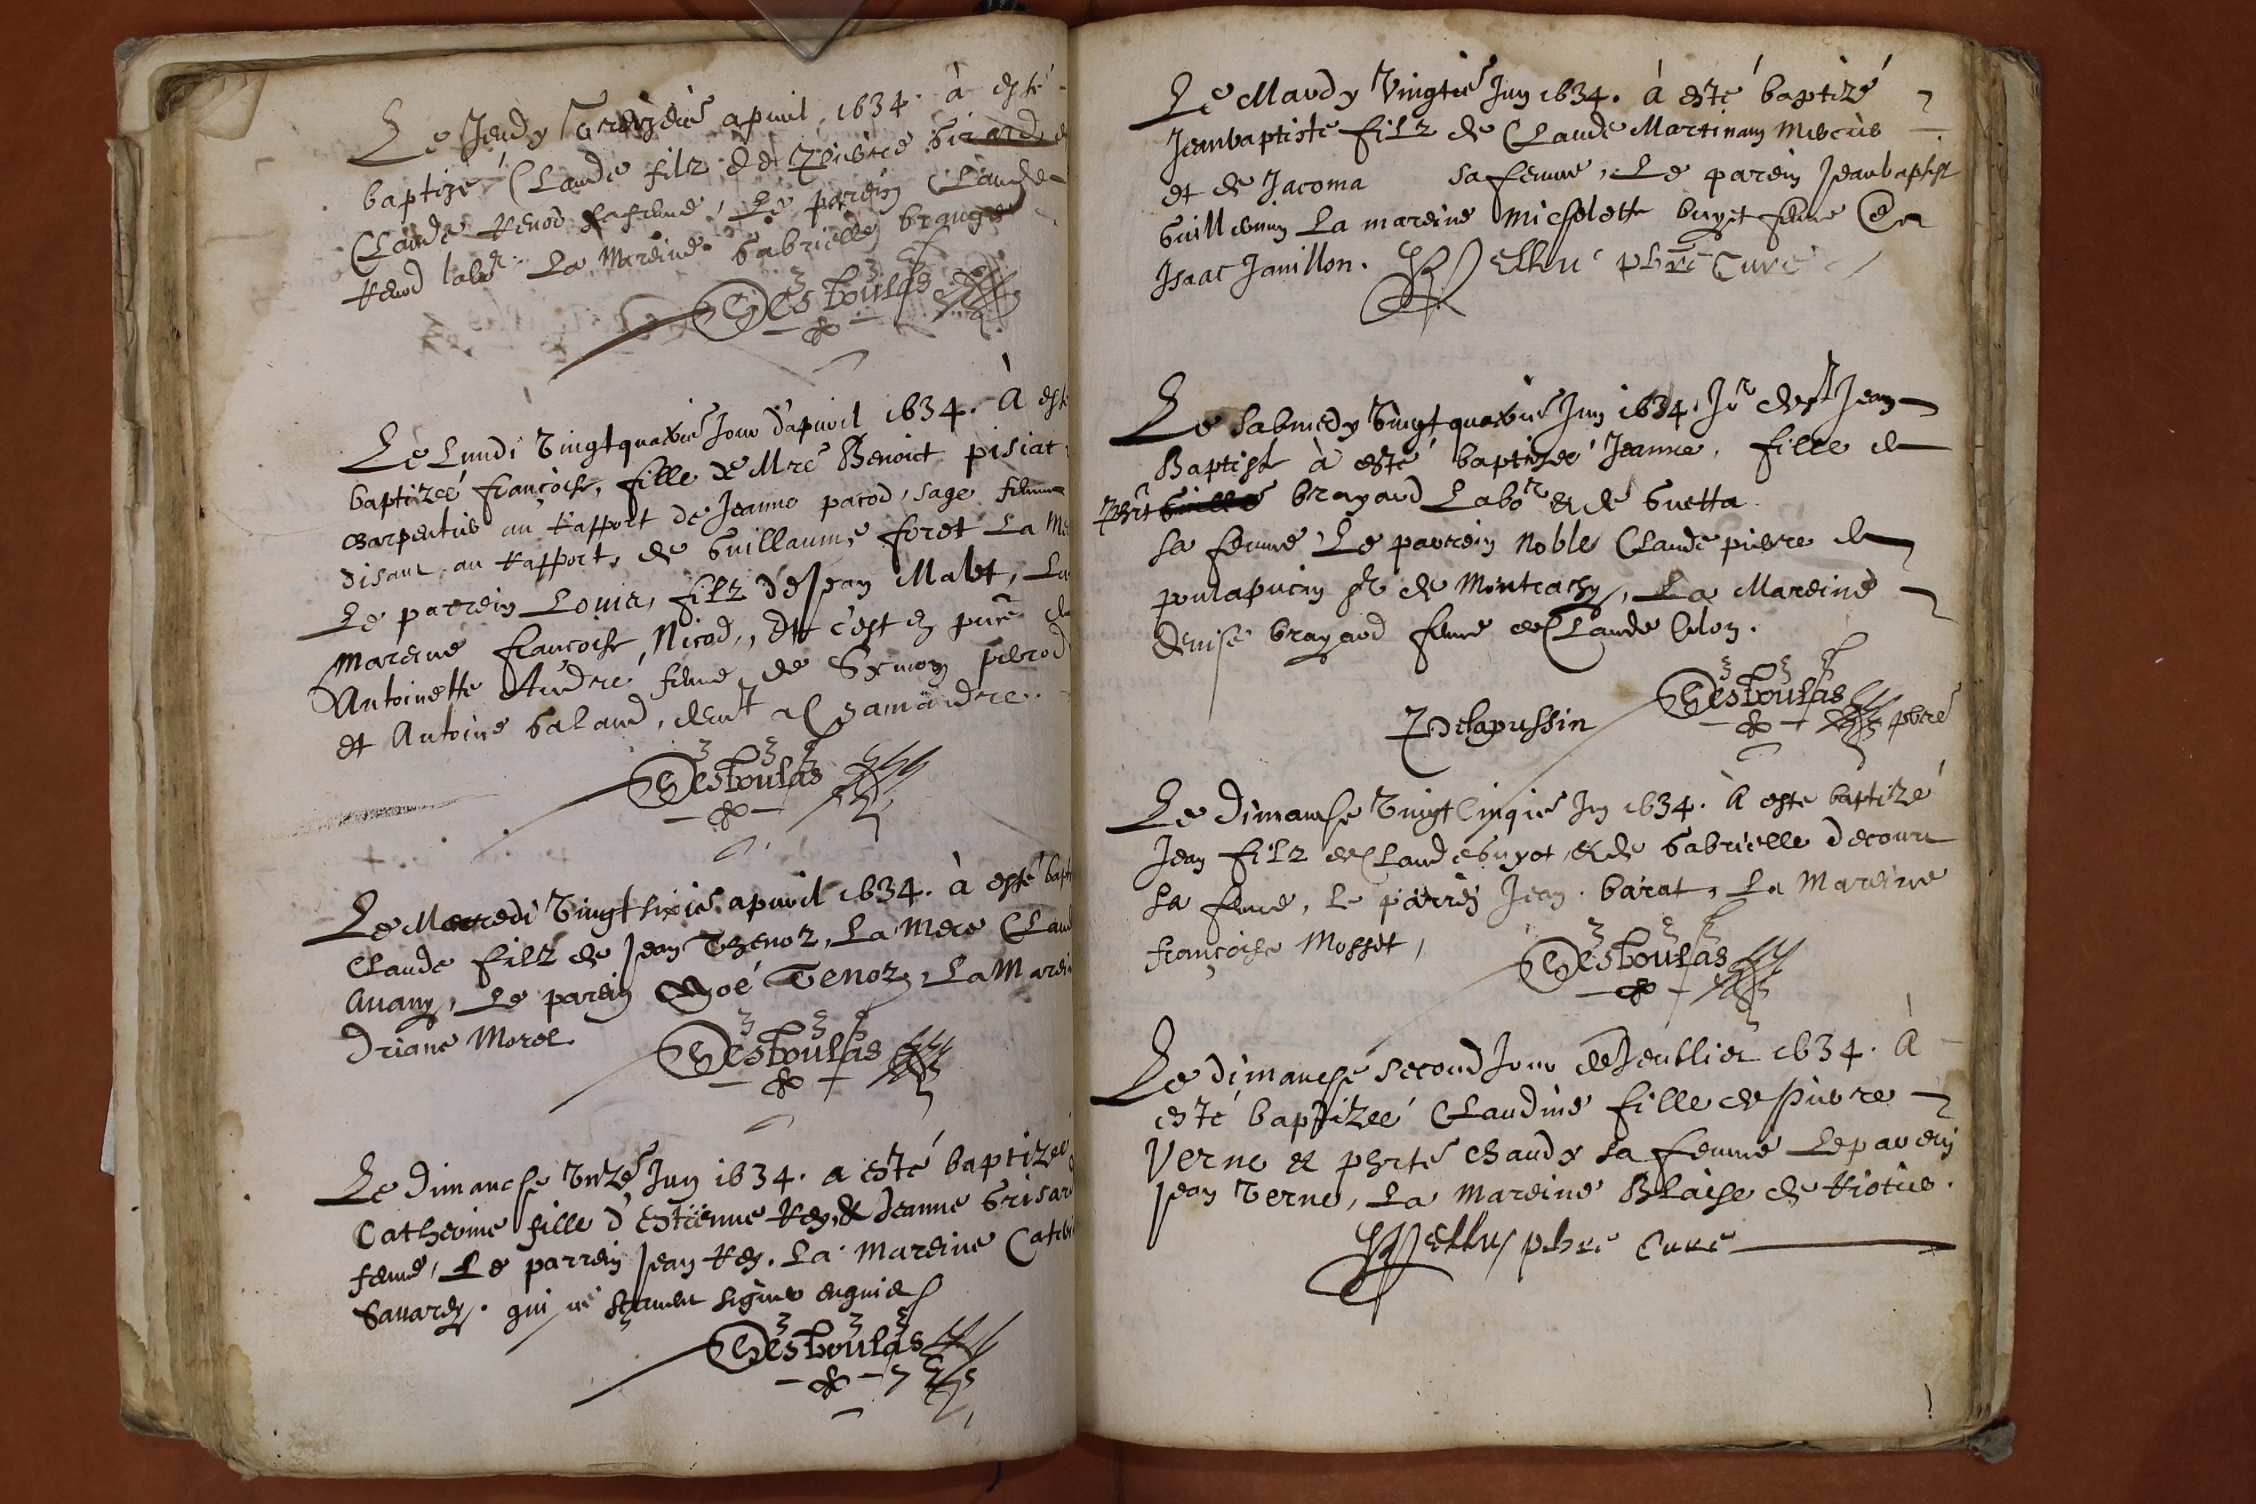 Le Jeudy apuril 1634. à esté
baptizé Claude filz de Pierre Girard
Clauda Renod sa feme, Le parein Claude
Renod labor. La Mareine Gabrielle brange
Desboulas
Le Lundi Vingtquatrie Jour d'apuril 1634. A esté
baptizeé françoise, fille de Mre Benoict pisiat
Charpentier au Rapport de Jeanne pacod, sage femme
disant au Rapport, de Guillaume foret La Me
Le parrein Louis, filz de Jean Malet, La
Mareine françoise Nicod, Et c'est en pnce de
Antoinette Andre feme de Symon pierod
et Antoine Galand, demt a Samandre.
Desboulas
Le Mercredi Vingtsixie apuril 1634. à esté bapt
Claude filz de Jean Thenoz, La Mere Clau
Auany, Le parein Noé Tenoz, La Marei
Driane Morel
Desboulas
Le dimanche Unze Jun 1634. a esté baptizeé
Catherine fille d'Estienne Rey, & Jeanne Grisar
feme, Le parrein Jean Rey. La Mareine Cather
Sauarey. qui ne scauent signer enquis
Desboulas
Le Mardy Vingtie Jun 1634. à esté baptizé
Jeanbaptiste filz de Claude Martinam Mercier
et de Jacoma sa femme, Le parein Jeanbaptist
Guillemin La mareine Michelette buyet feme
Isaac Janillon. pbre Curé
Le Sabmedy Vingtquatrie Jun 1634. Jr de st Jean
Baptiste à esté baptizeé Jeanne, fille de
Phrt brayard Labor & de Guetta
sa femme Le parrein Noble Claude pierre de
ponlapucin sr de Montcachy, La Mareine
denise brayard feme de Claude Colon.
Delapussin
Desboulas pbre
Le Dimanche Vingt Cinqie Jn 1634. A este baptizé
Jean filz de Claude buyet & de Gabrielle decourt
sa feme, Le parrein Jean barat, La Mareine
françoise Mosset,
Desboulas
Le dimanche second Jour de Jeullier 1634. A
esté baptizeé Claudine fille de Pierre
Verne & phrte Chaudy sa femme Le parein
Jean Verne, La Mareine Blaise de Riotier.
pbre Curé